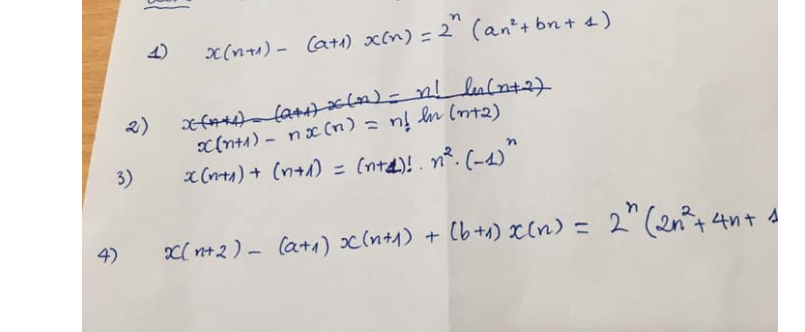 1) x(n+1) - (a+1) x(n) = 2^n (an² + bn + 1)
2) x(n+1) - (a+1) x(n) = n! ln(n+2)
x(n+1) - n x(n) = n! ln(n+2)
3) x(n+1) + (n+1) = (n+1)! . n² . (-1)^n
4) x(n+2) - (a+1) x(n+1) + (b+1) x(n) = 2^n (2n² + 4n + 1